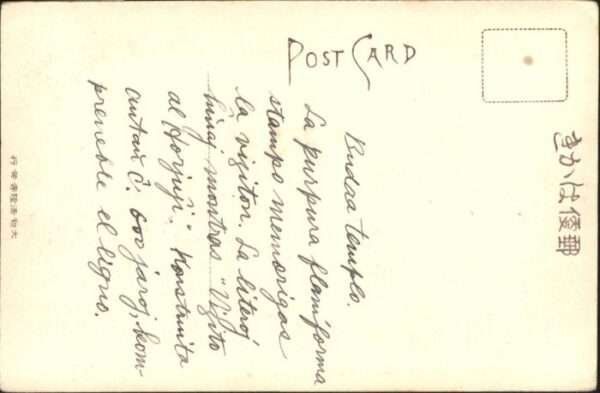 POST CARD
きかは便郵
Budaa templo.
La purpura flamforma
stampo memorigas
la viziton. La literoj
ĥinaj montras "Vizito
al Horjuji." Konstruita
antaŭ ĉ. 600 jaroj, kom-
preneble el ligno.